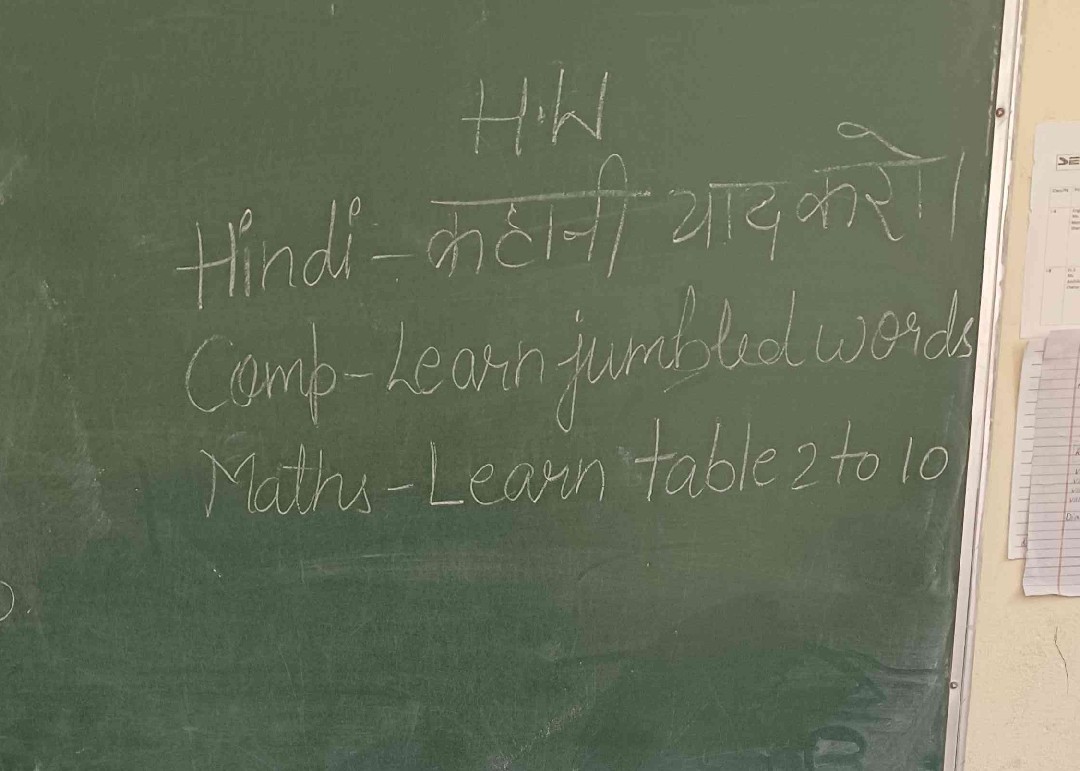 H.W
Hindi - कहानी याद करो।
Comp - Learn jumbled words
Maths - Learn table 2 to 10